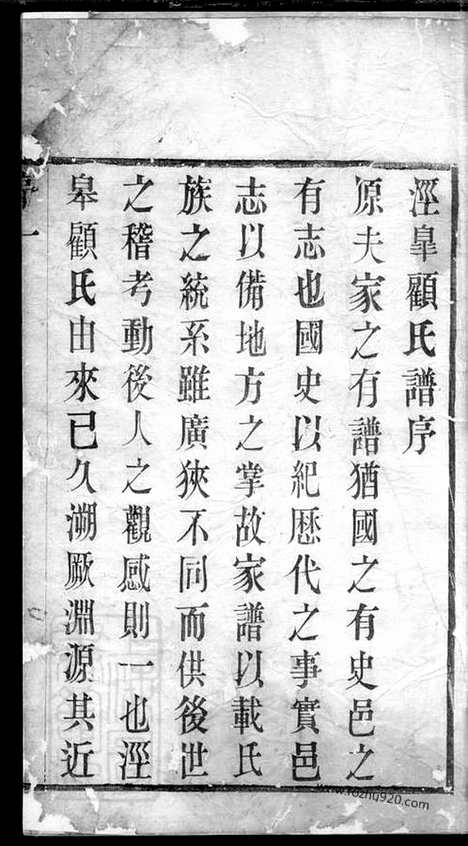 涇皐顧氏譜序
原夫家之有譜猶國之有史邑之
有志也國史以紀歷代之事實邑
志以備地方之掌故家譜以載氏
族之統系雖廣狹不同而供後世
之稽考動後人之觀感則一也涇
皐顧氏由來已久溯厥淵源其近
www.fozhq920.com